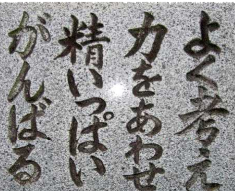 よく考え
力をあわせ
精いっぱい
がんばる